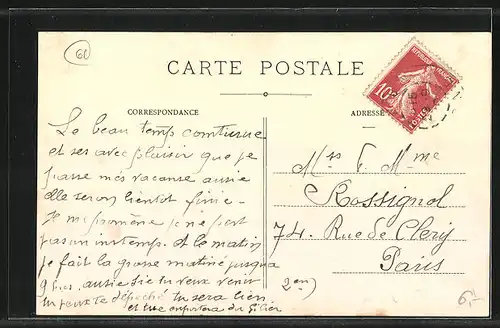 60
CARTE POSTALE
CORRESPONDANCE
ADRESSE
RÉPUBLIQUE FRANÇAISE
10
POSTES
Le beau temps comtinue
et ses avec plaisir que je
passe mes vacanse ausie
elle seron bientot finie -
Je me promène je ne pert
pas un instemps. et le matin
je fait la grosse matiné jusqua
9 h. ausie sie tu veux venir
tu peux te dépeché tu sera bien
et tue
du Gibier
Mrs F. Mme
Rossignol
74. Rue de Clery
Paris
2em
6,-